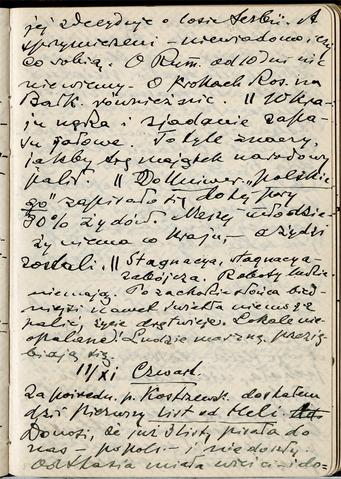 jej zdecyduje o losie Serbii. A
sprzymierzeni – niewiadomo, czy
co robią. O Rum. od 10 dni nic
nie wiemy. O krokach Ros. na
Bałk. również nic. || W kra-
ju nędza i zjadanie zapa-
su jałowe. To tyle znaczy,
jakby się majątek narodowy
palił. || Do Uniwer. „polskie-
go" zapisało się dotę przy
30% żydów. Naszej młodzie-
ży niema w kraju, – a żydzi
zostali. || Stagnacya, stagnacya
zabójcza. Roboty ludzie
niemają. Po zachodzie słońca bied
niejsi nawet światła niemogą
palić, życie drętwieje. Lokale nie
opalane. Ludzie marzną, przezię
biają się.
11/XI Czwart.
Za pośredn. p. Kostrzewsk. dostałem
dziś pierwszy list od Heli.
Donosi, że już 3 listy pisała do
nas – popols. – i nie doszły.
Ostatnia miała wieści i do=